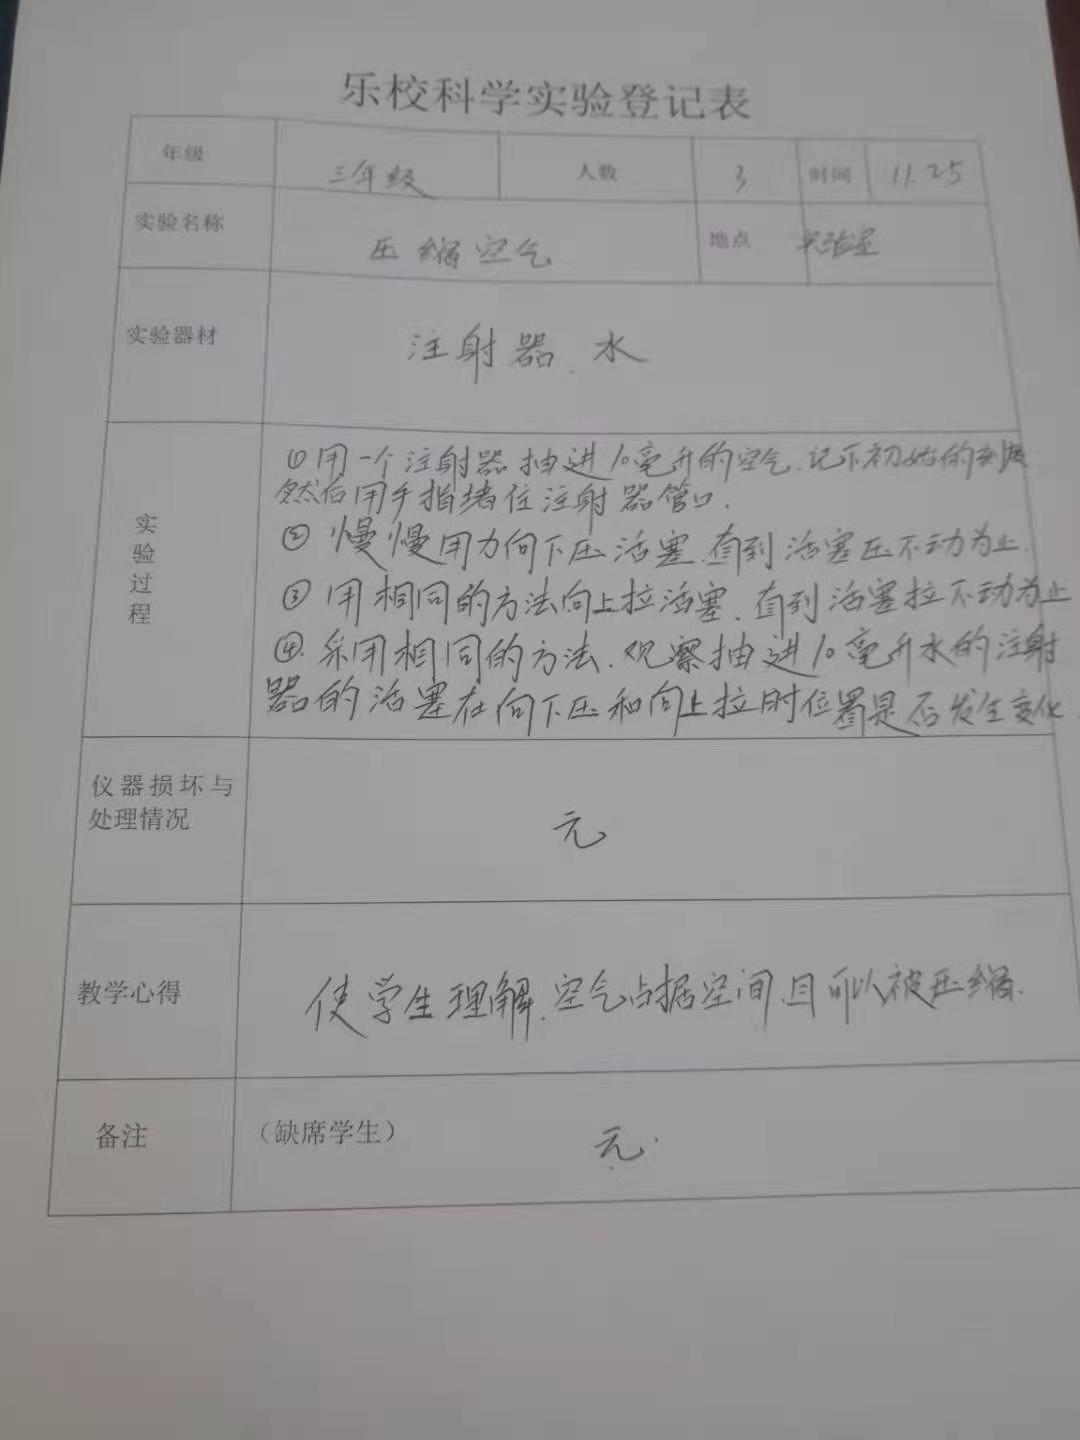 乐校科学实验登记表
年级 三年级 人数 3 时间 11.25
实验名称 压缩空气 地点 实验室
实验器材 注射器、水
实验过程
①用一个注射器抽进10毫升的空气、记下初始的刻度
然后用手指堵住注射器管口.
②慢慢用力向下压活塞、直到活塞压不动为止.
③用相同的方法向上拉活塞、直到活塞拉不动为止
④.采用相同的方法、观察抽进10毫升水的注射
器的活塞在向下压和向上拉时位置是否发生变化.
仪器损坏与
处理情况 无
教学心得 使学生理解、空气占据空间、且可以被压缩.
备注 (缺席学生) 无.